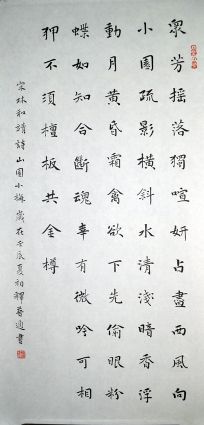 衆芳搖落獨喧妍占盡西風向
小園疏影橫斜水清淺暗香浮
動月黃昏霜禽欲下先偷眼粉
蝶如知合斷魂幸有微吟可相
狎不須檀板共金樽
宋林和靖詩山園小梅歲在壬辰夏初釋書